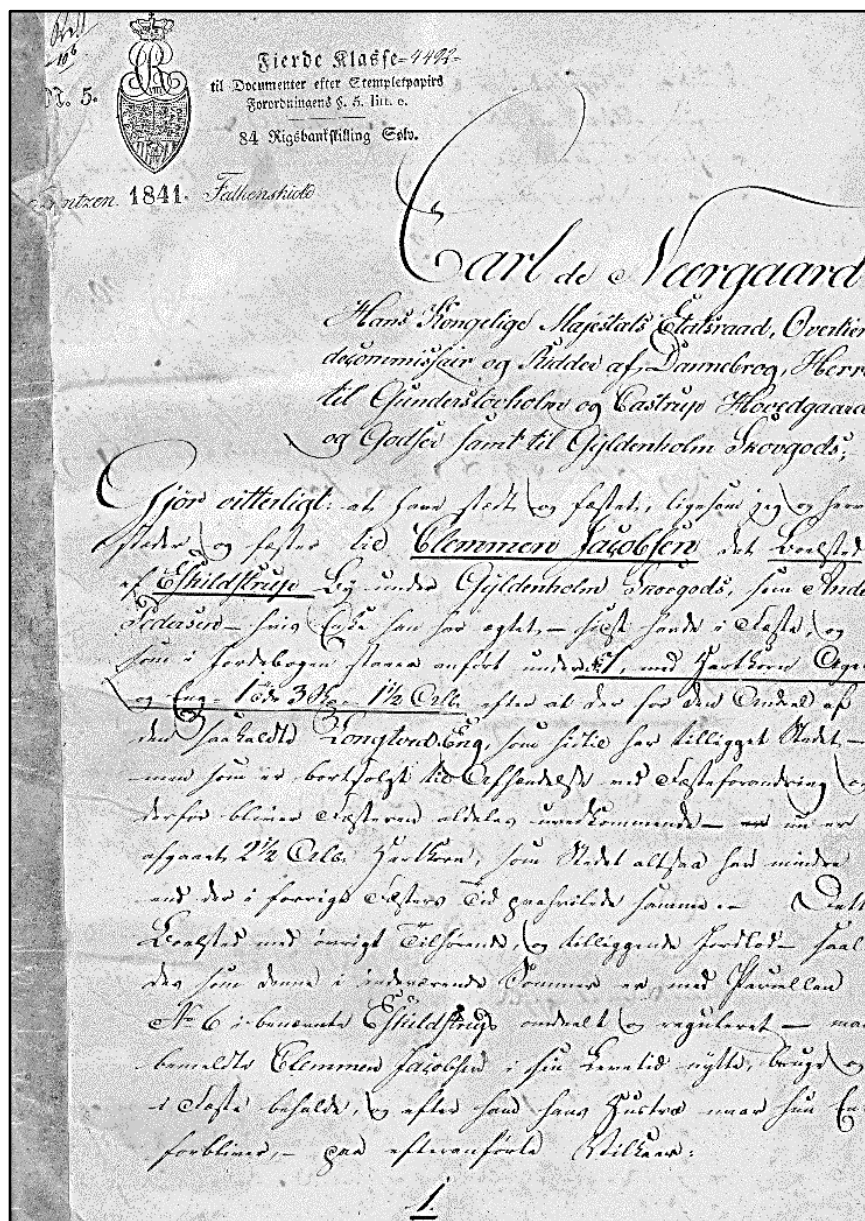 No. 5.
Fierde Klasse = 4492 =
til Documenter efter Stempletpapirs
Forordningens §. 5. litt. c.
84 Rigsbankskilling Sølv.
ntzen. 1841. Falkenskiold
Carl de Neergaard
Hans Kongelige Majestæts Etatsraad, Overkrig
decommissair og Ridder af Dannebrog, Herre
til Gunderslevholm og Castrup Hovedgaard
og Godser samt til Gyldenholm Skovgods,
Gjør vitterligt: at have stædt og fæstet, ligesom jeg og herv
stæder og fæster til Clemmen Jacobsen det Boelsted
af Eskildstrup Bÿ under Gyldenholm Skovgods, som Ande
Pedersen – hvis Enke han har ægtet, – sidst havde i Fæste, og
som i Jordebogen staaer anført under № 1, med Hartkorn Ager
og Eng – 1 Tde 3 Skp – 1½ Alb. efter at der for den Andeel af
den saakaldte Eng, som hidtil har tilligget Stedet –
men som er bortsolgt til Afhændelse ved Fæsteforandring og
derfor bliver Fæsteren aldeles uvedkommende – nu er
afgaaet 2½ Alb. Hartkorn, som Stedet altsaa har mindre
end der i forrige Fæsters Tid paahvilede samme. – Dett
Boelsted med øvrigt Tilhørende, og tilliggende Jordlod – saal
des som denne i indeværende Sommer er med Parcellen
№ 6 i benævnte Eskildstrup omdeelt og reguleret – maa
bemeldte Clemmen Jacobsen i sin Levetid nytte, bruge og
i Fæste beholde, og efter ham hans Hustrue naar hun En
forbliver, – paa efteranførte Vilkaar:
1.